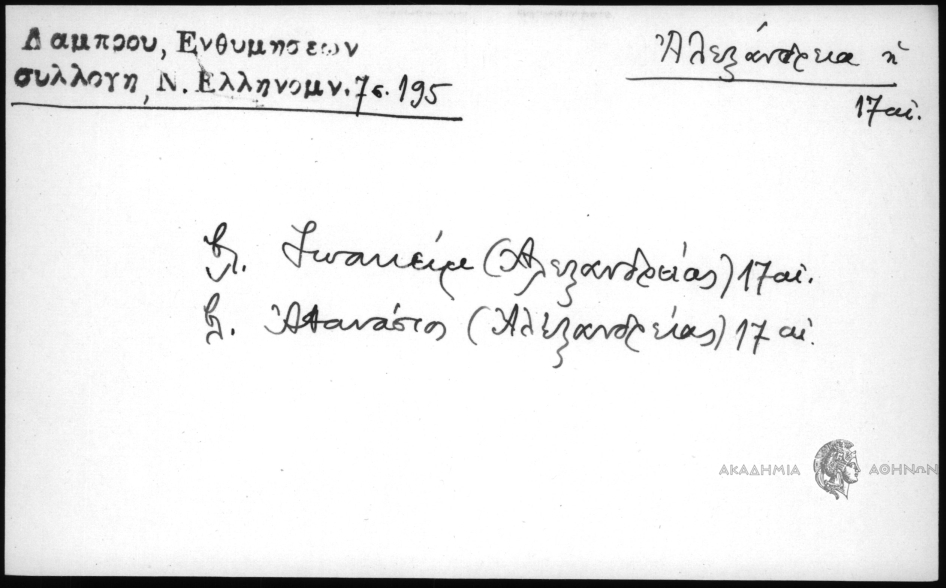 Λαμπρου, Ενθυμησεων
συλλογη, Ν. Ελληνομν. 7 σ. 195
Ἀλεξάνδρεια ἡ
17 αἰ.
βλ. Ἰωακείμ (Ἀλεξανδρείας) 17 αἰ.
βλ. Ἀθανάσιος (Ἀλεξανδρείας) 17 αἰ.
ΑΚΑΔΗΜΙΑ ΑΘΗΝΩΝ